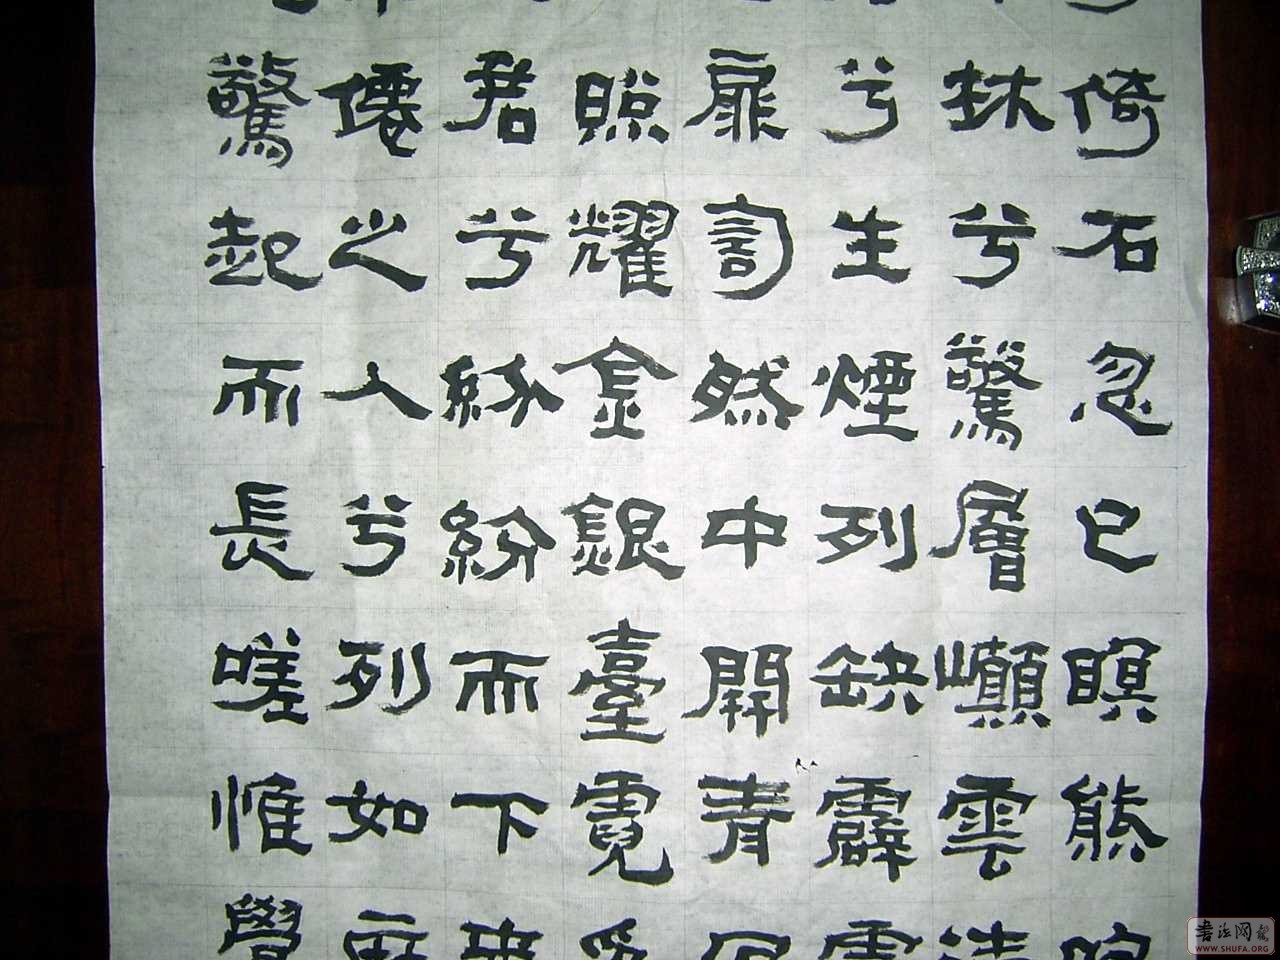 倚石忽已瞑熊
林兮驚層巔雲
兮生煙列缺霹
扉訇然中開青
照耀金銀臺霓
君兮紛紛而下來
僊之人兮列如麻
驚起而長嗟惟覺
书法网
WWW.SHUFA.ORG